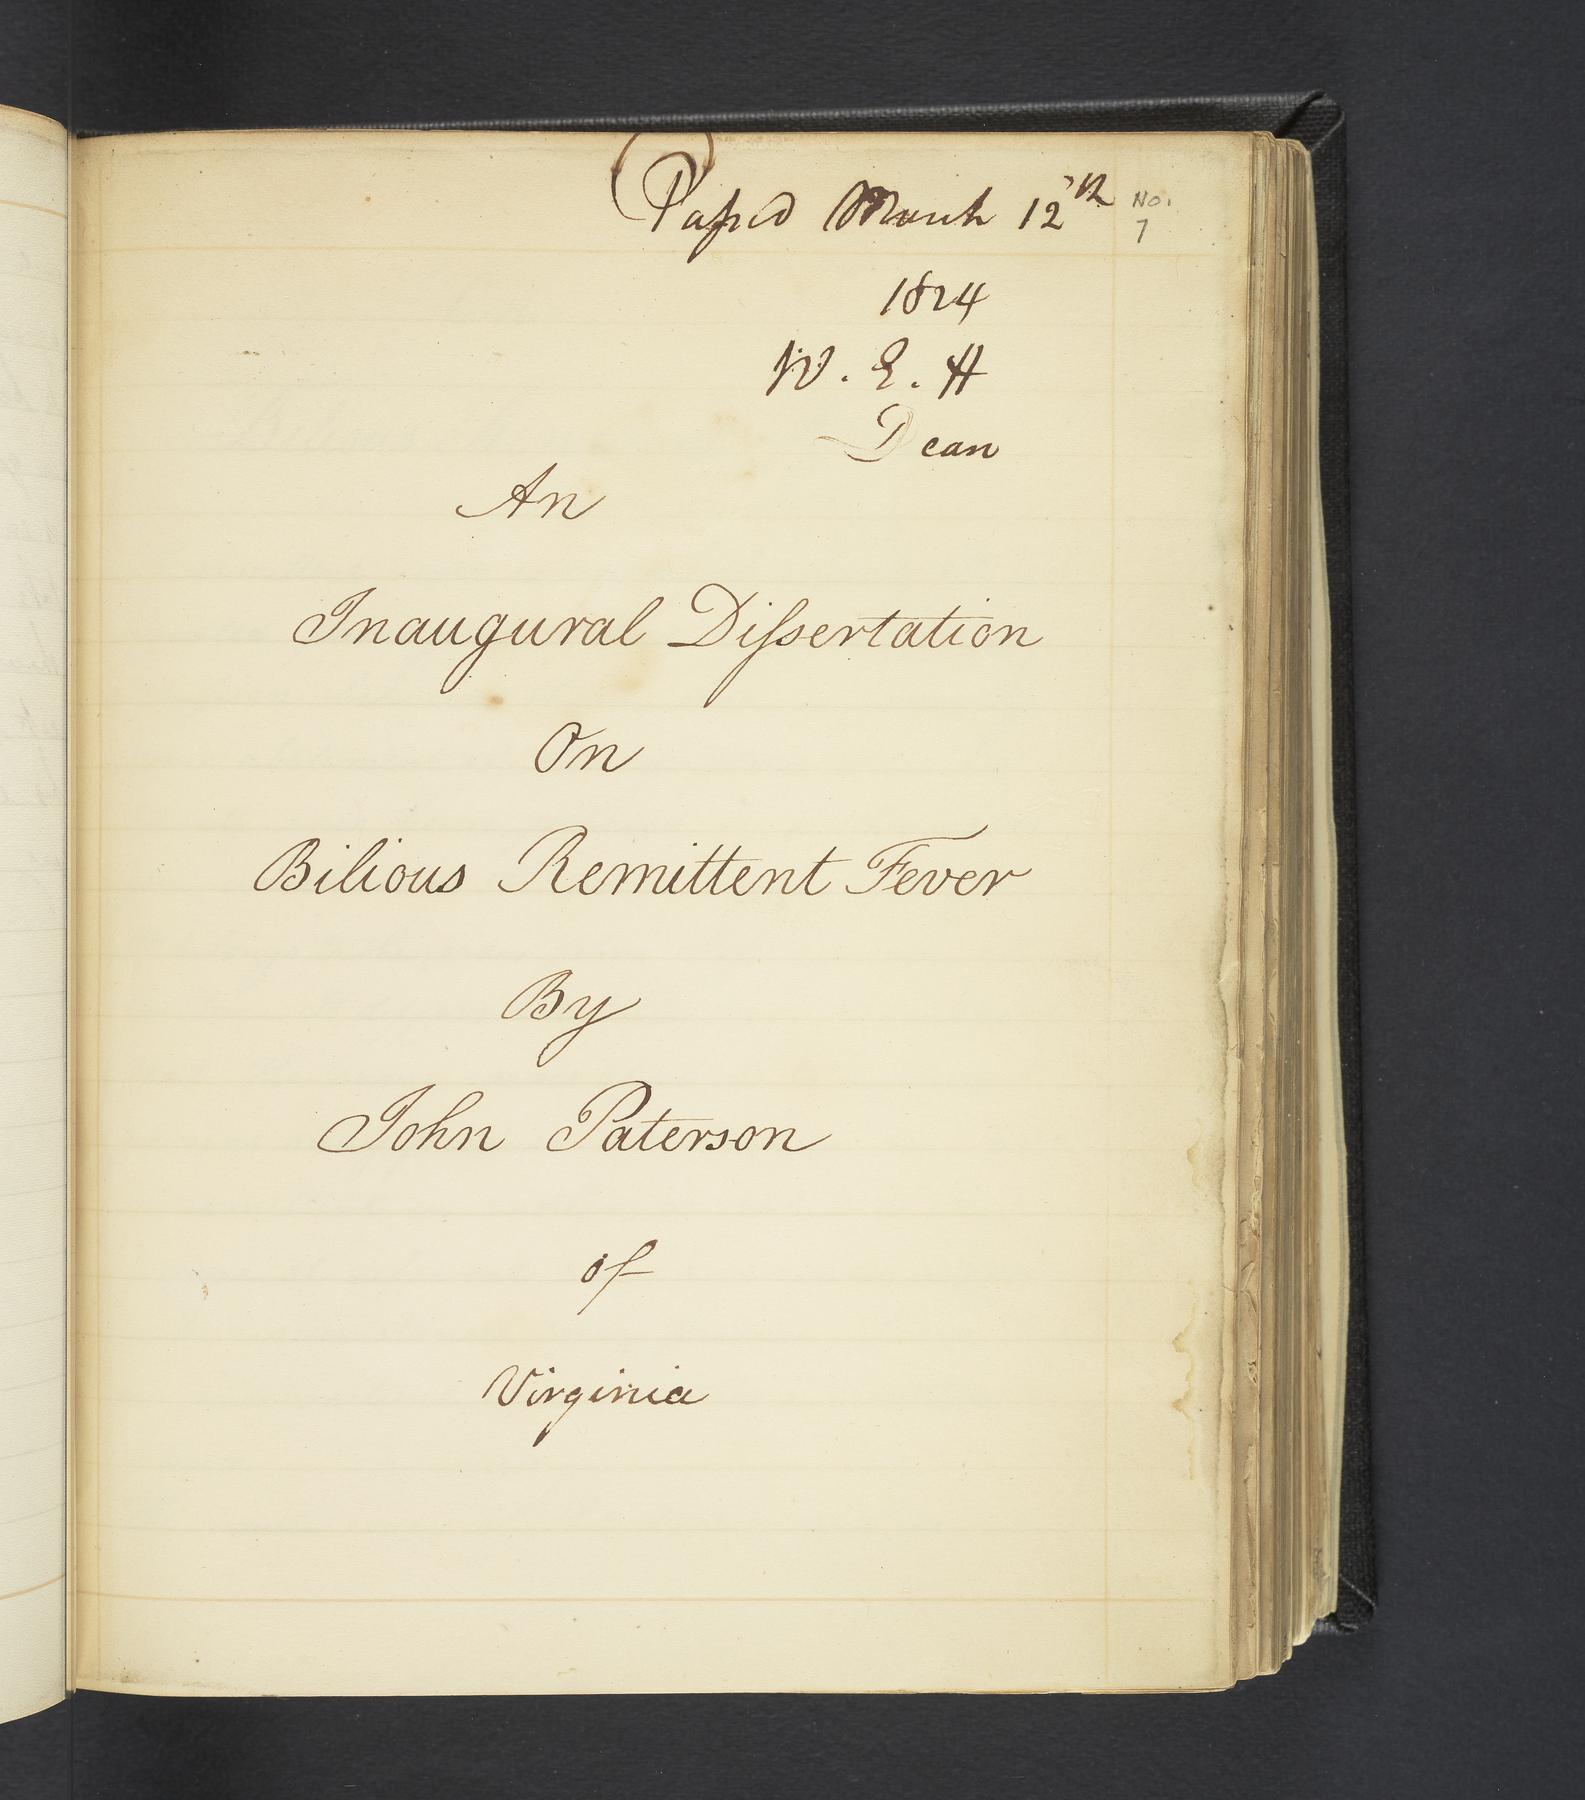 Passed March 12th
No.
7
1824
W. E. H
Dean
An
Inaugural Dissertation
On
Bilious Remittent Fever
By
John Paterson
of
Virginia